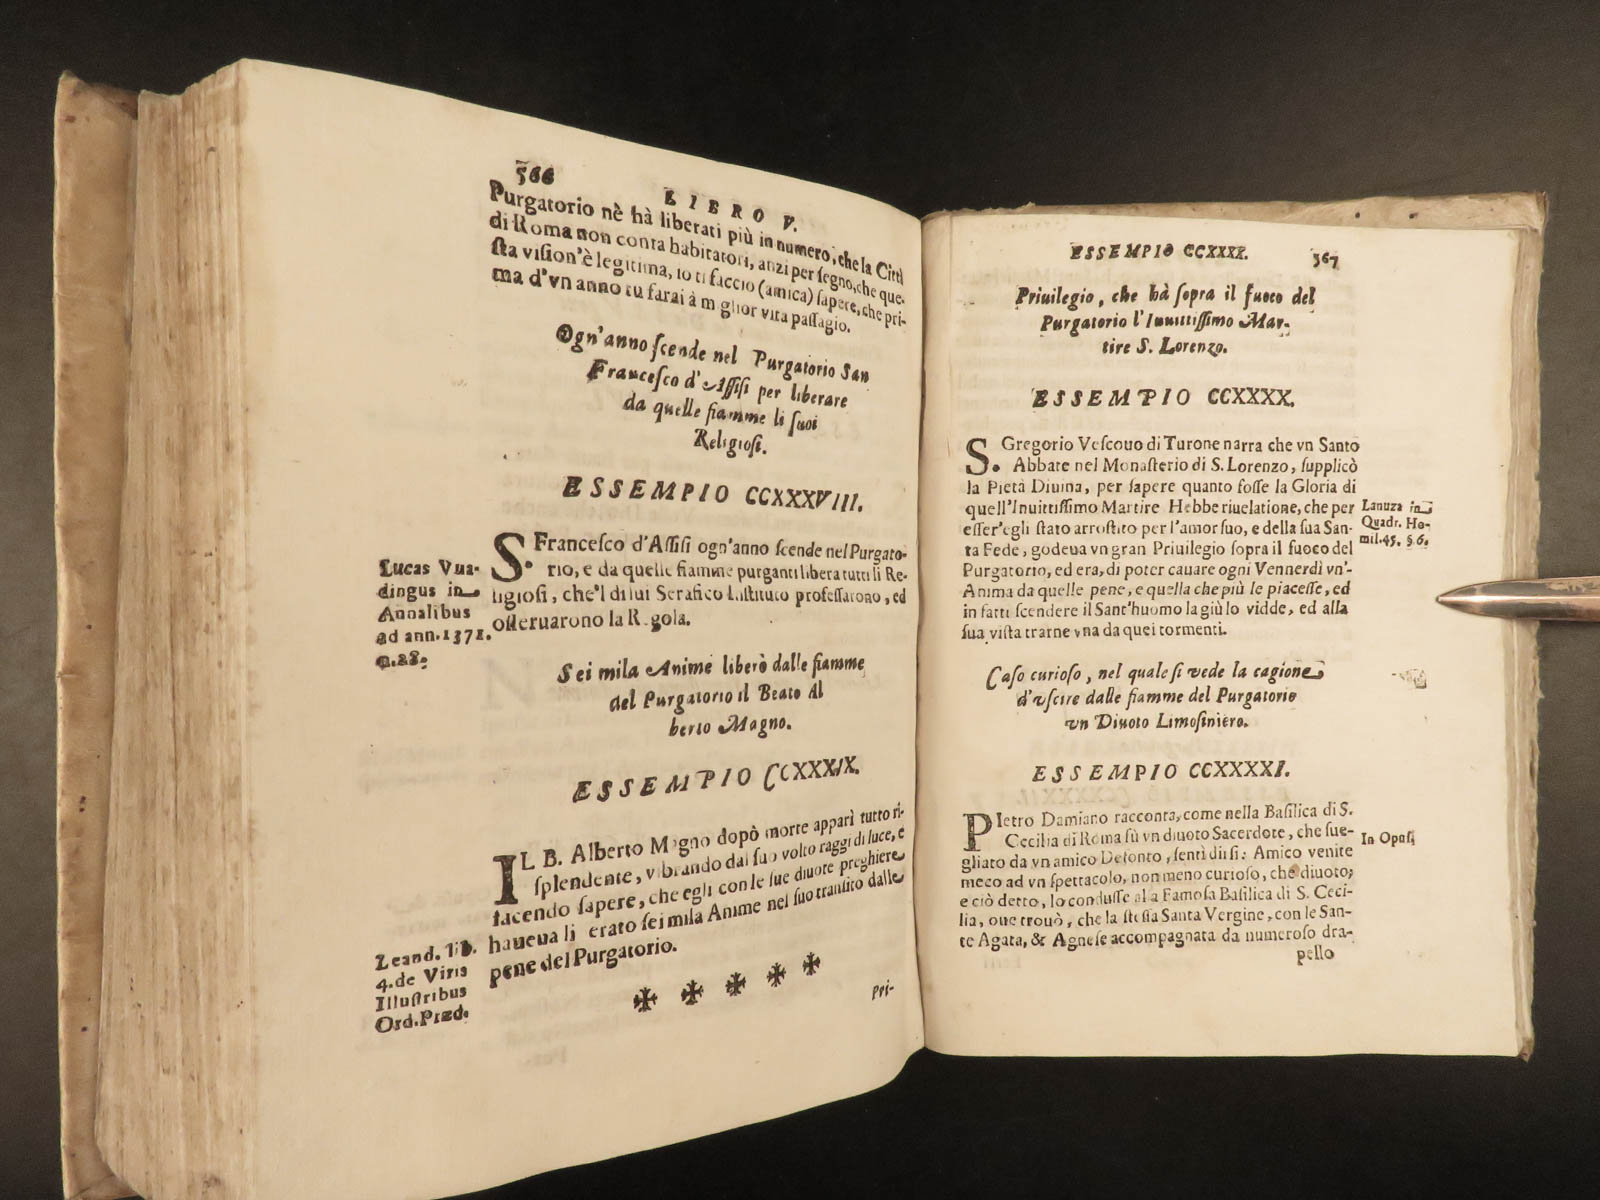 566
LIBRO V.
Purgatorio nè hà liberati più in numero, che la Città
di Roma non conta habitatori, anzi per segno, che que-
sta vision'è legitima, io ti faccio (amica) sapere, che pri-
ma d'vn anno tu farai à miglior vita passagio.
Ogn'anno scende nel Purgatorio San
Francesco d'Assisi per liberare
da quelle fiamme li suoi
Religiosi.
ESSEMPIO CCXXXVIII.
S. Francesco d'Assisi ogn'anno scende nel Purgato-
rio, e da quelle fiamme purganti libera tutti li Re-
ligiosi, che'l di lui Serafico Instituto professarono, ed
osseruarono la Regola.
Lucas Vua-
dingus in
Annalibus
ad ann. 1371.
n.28.
Sei mila Anime liberò dalle fiamme
del Purgatorio il Beato Al
berto Magno.
ESSEMPIO CCXXXIX.
IL B. Alberto Magno dopò morte apparì tutto ri-
splendente, vibrando dal suo volto raggi di luce, e
facendo sapere, che egli con le sue diuote preghiere
haueua li erato sei mila Anime nel suo transito dalle
pene del Purgatorio.
Leand. lib.
4. de Viris
Illustribus
Ord. Præd.
pri-
ESSEMPIO CCXXXX.
567
Priuilegio, che hà sopra il fuoco del
Purgatorio l'Inuittissimo Mar-
tire S. Lorenzo.
ESSEMPIO CCXXXX.
S. Gregorio Vescouo di Turone narra che vn Santo
Abbate nel Monasterio di S. Lorenzo, supplicò
la Pietà Diuina, per sapere quanto fosse la Gloria di
quell'Inuittissimo Martire Hebbe riuelatione, che per
esser'egli stato arrostito per l'amor suo, e della sua San-
ta Fede, godeua vn gran Priuilegio sopra il fuoco del
Purgatorio, ed era, di poter cauare ogni Vennerdì vn'
Anima da quelle pene, e quella che più le piacesse, ed
in fatti scendere il Sant'huomo la giù lo vidde, ed alla
sua vista trarne vna da quei tormenti.
Lanuza in
Quadr. Ho-
mil. 45. §. 6.
Caso curioso, nel quale si vede la cagione
d'vscire dalle fiamme del Purgatorio
vn Diuoto Limosiniero.
ESSEMPIO CCXXXXI.
PIetro Damiano racconta, come nella Basilica di S.
Cecilia di Roma fù vn diuoto Sacerdote, che sue-
gliato da vn amico Defonto, sentì dirsi: Amico venite
meco ad vn spettacolo, non meno curioso, che diuoto;
e ciò detto, lo condusse al a Famosa Basilica di S. Ceci-
lia, oue trouò, che la stessa Santa Vergine, con le San-
te Agata, & Agnese accompagnata da numeroso dra-
In Opusc
pello